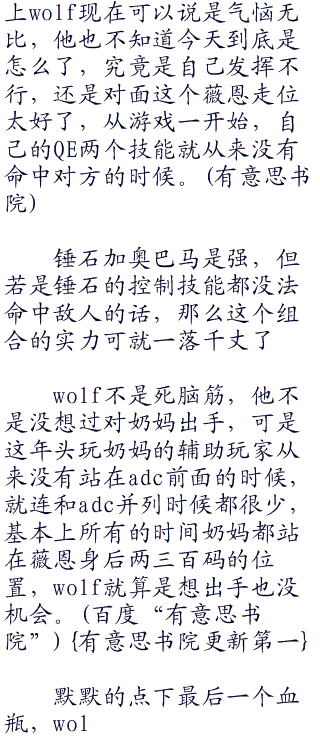 上wolf现在可以说是气恼无
比，他也不知道今天到底是
怎么了，究竟是自己发挥不
行，还是对面这个薇恩走位
太好了，从游戏一开始，自
己的QE两个技能就从来没有
命中对方的时候。(有意思书
院)
锤石加奥巴马是强，但
若是锤石的控制技能都没法
命中敌人的话，那么这个组
合的实力可就一落千丈了
wolf不是死脑筋，他不
是没想过对奶妈出手，可是
这年头玩奶妈的辅助玩家从
来没有站在adc前面的时候，
就连和adc并列时候都很少，
基本上所有的时间奶妈都站
在薇恩身后两三百码的位
置，wolf就算是想出手也没
机会。(百度“有意思书
院”){有意思书院更新第一}
默默的点下最后一个血
瓶，wol